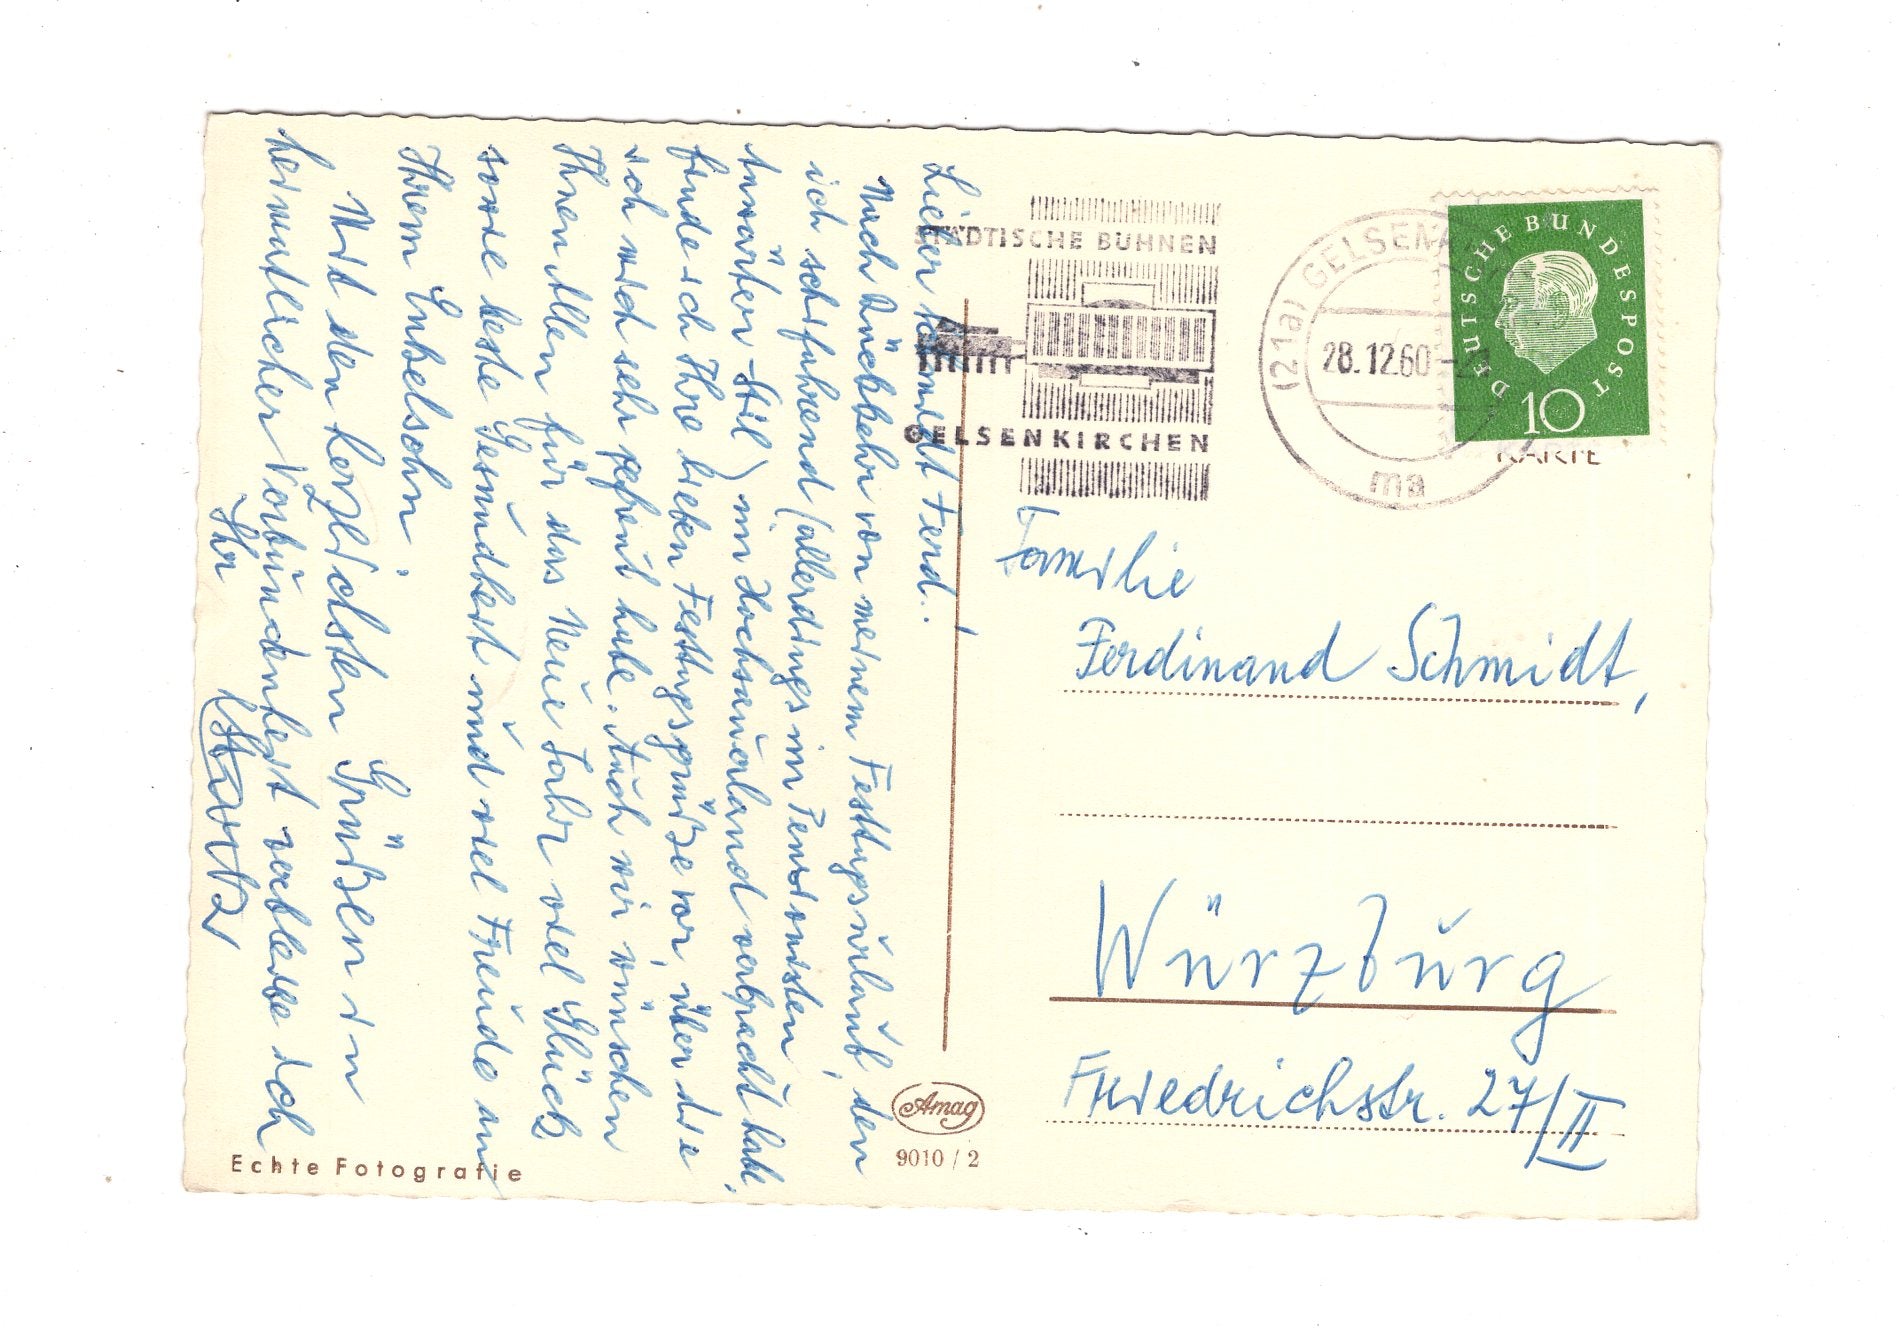 Lieber Konfrat Ferd.!
Nach Rückkehr von meinem Festtagsurlaub, den
ich schifahrend (allerdings im
Anwärter-Stil) im Hochsauerland verbracht habe,
finde ich Ihre lieben Festtagsgrüße vor, über die
ich mich sehr gefreut habe. Auch wir wünschen
Ihnen Allen für das Neue Jahr viel Glück
sowie beste Gesundheit und viel Freude an
Ihrem Enkelsohn.
Mit den herzlichsten Grüßen in
heimatlicher Verbundenheit verbleibe ich
Ihr
STÄDTISCHE BÜHNEN
GELSENKIRCHEN
(21a) GELSENK
28.12.60
ma
DEUTSCHE BUNDESPOST
10
KARTE
Familie
Ferdinand Schmidt,
Würzburg
Friedrichstr. 27/II
Amag
9010 / 2
Echte Fotografie